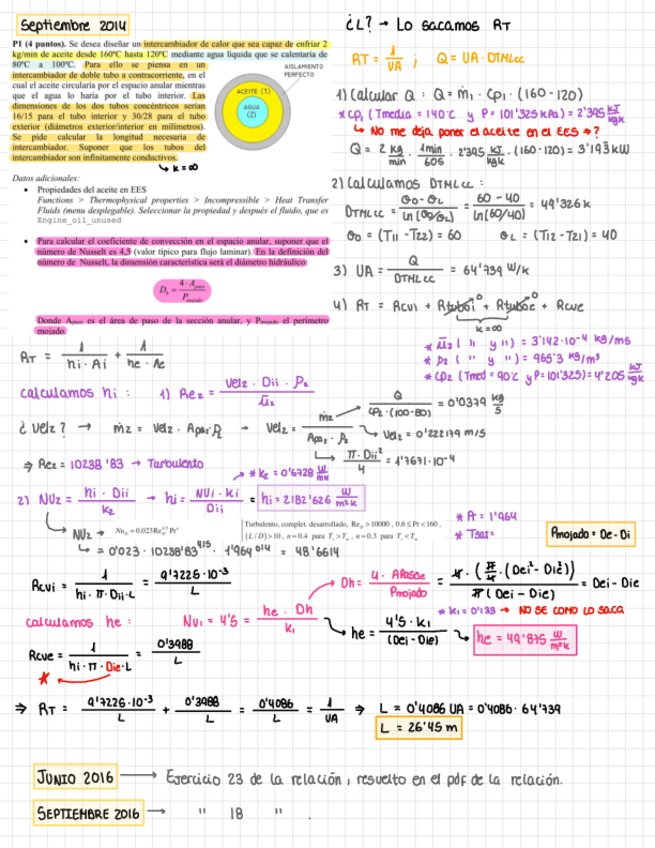 Septiembre 2014
P1 (4 puntos). Se desea diseñar un intercambiador de calor que sea capaz de enfriar 2
kg/min de aceite desde 160ºC hasta 120ºC mediante agua líquida que se calentaría de
80ºC a 100ºC. Para ello se piensa en un
intercambiador de doble tubo a contracorriente, en el
cual el aceite circularía por el espacio anular mientras
que el agua lo haría por el tubo interior. Las
dimensiones de los dos tubos concéntricos serían
16/15 para el tubo interior y 30/28 para el tubo
exterior (diámetros exterior/interior en milímetros).
Se pide calcular la longitud necesaria de
intercambiador. Suponer que los tubos del
intercambiador son infinitamente conductivos.
↳ K = ∞
AISLAMIENTO
PERFECTO
ACEITE (1)
AGUA
(2)
Datos adicionales:
• Propiedades del aceite en EES
Functions > Thermophysical properties > Incompressible > Heat Transfer
Fluids (menu desplegable). Seleccionar la propiedad y después el fluido, que es
Engine_oil_unused
• Para calcular el coeficiente de convección en el espacio anular, suponer que el
número de Nusselt es 4,5 (valor típico para flujo laminar). En la definición del
número de Nusselt, la dimensión característica será el diámetro hidráulico:
Dh = 4·Apaso / Pmojado
Donde Apaso es el área de paso de la sección anular, y Pmojado el perímetro
mojado.
¿L? → Lo sacamos RT
RT = 1/UA ; Q = UA · DTMLcc
1) Calcular Q : Q = ṁ1 · Cp1 · (160 - 120)
* CP1 (Tmedia = 140ºC y P = 101'325 kPa) = 2'395 kJ/kgK
↳ No me deja poner el aceite en el EES → ?
Q = 2 kg/min · 1min/60s · 2'395 kJ/kgK · (160-120) = 3'193 kW
2) Calculamos DTMLcc :
DTMLcc = (θ0 - θL) / ln(θ0/θL) = (60 - 40) / ln(60/40) = 49'326 K
θ0 = (T11 - T22) = 60 θL = (T12 - T21) = 40
3) UA = Q / DTMLcc = 64'739 W/K
4) RT = Rcvi + Rtuboi + Rtuboe + Rcve
K = ∞
RT = 1/(hi · Ai) + 1/(he · Ae)
* μ̄2 ( " y ") = 3'142·10-4 kg/ms
* ρ2 ( " y ") = 965'3 kg/m3
* CP2 (Tmed = 90ºC y P = 101'325) = 4'205 kJ/kgK
calculamos hi : 1) Re2 = (Vel2 · Dii · ρ2) / μ̄2
Q / (CP2 · (100-80)) = 0'0379 kg/s
¿Vel2? → ṁ2 = Vel2 · Apas · ρ2 → Vel2 = ṁ2 / (Apas · ρ2) → Vel2 = 0'222179 m/s
π · Dii2 / 4 = 1'7671·10-4
⇒ Re2 = 10238'83 → Turbulento
* K2 = 0'6728 W/mK
2) NU2 = hi · Dii / K2 → hi = NUi · Ki / Dii = hi = 2182'626 W/m2K
NU2 → NuD = 0.023ReD4/5 Prn
Turbulento, complet. desarrollado, ReD > 10000 , 0.6 ≤ Pr < 160 ,
(L / D) > 10 , n = 0.4 para Ts > Tm , n = 0.3 para Ts < Tm
= 0'023 · 10238'834/5 · 1'9640'4 = 48'6614
* Pr = 1'964
* Tsat =
Pmojado = De - Di
Rcvi = 1 / (hi · π · Dii · L) = 9'7226·10-3 / L
Dh = 4 · Apaso / Pmojado = 4 · (π/4 · (Dei2 - Die2)) / π(Dei - Die) = Dei - Die
calculamos he : NU1 = 4'5 = he · Dh / K1
* K1 = 0'133 → NO SE COMO LO SACA
he = 4'5 · K1 / (Dei - Die) → he = 49'875 W/m2K
Rcve = 1 / (hi · π · Die · L) = 0'3988 / L
*
⇒ RT = 9'7226·10-3 / L + 0'3988 / L = 0'4086 / L = 1/UA ⇒ L = 0'4086 UA = 0'4086 · 64'739
L = 26'45 m
JUNIO 2016 → Ejercicio 23 de la relación, resuelto en el pdf de la relación.
SEPTIEMBRE 2016 → " 18 " .